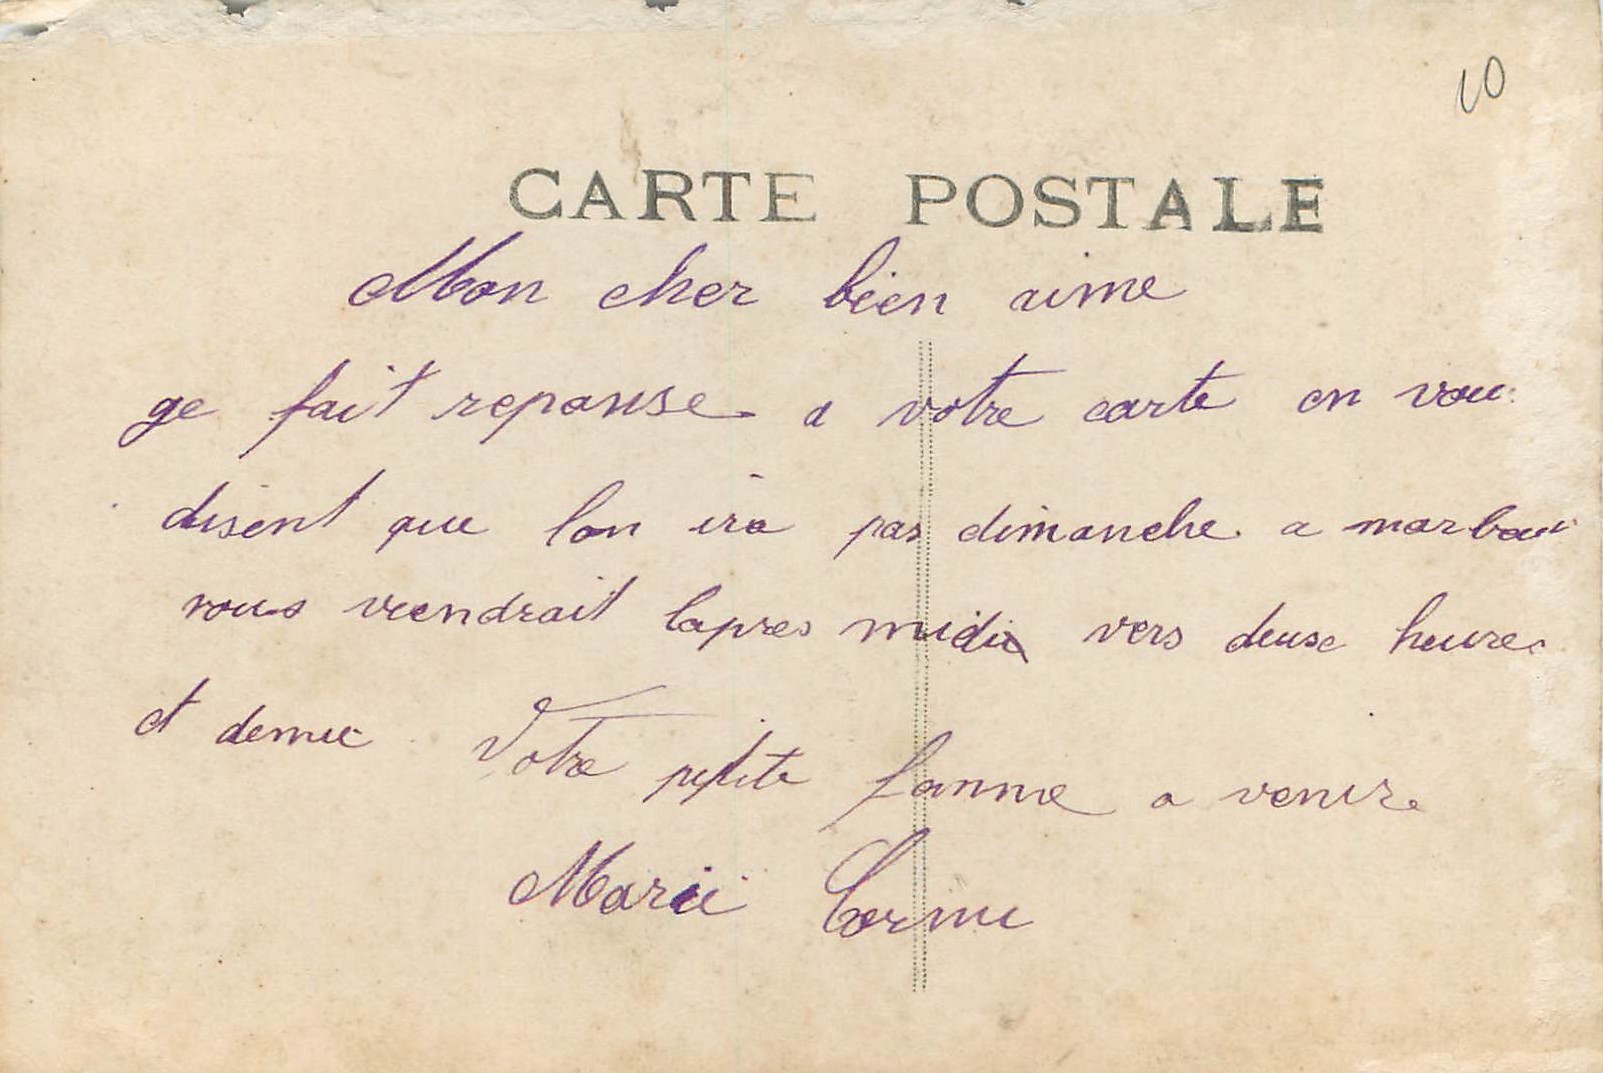 10
CARTE POSTALE
Mon cher bien aime
ge fait reponse a votre carte en vous
disent que lon ira pas dimanche a marboué
vous viendrait lapres midi vers deuse heures
et demie Votre petite famme a venir
Marie Cornu